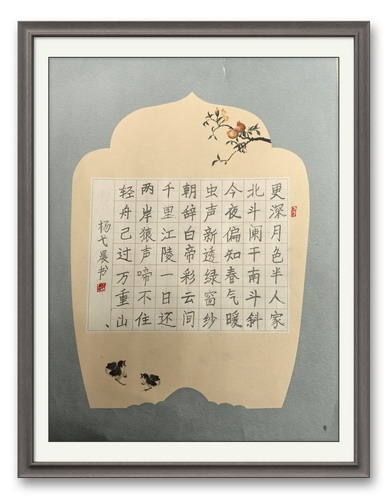 更深月色半人家
北斗阑干南斗斜
今夜偏知春气暖
虫声新透绿窗纱
朝辞白帝彩云间
千里江陵一日还
两岸猿声啼不住、
轻舟已过万重山
杨弋晨书